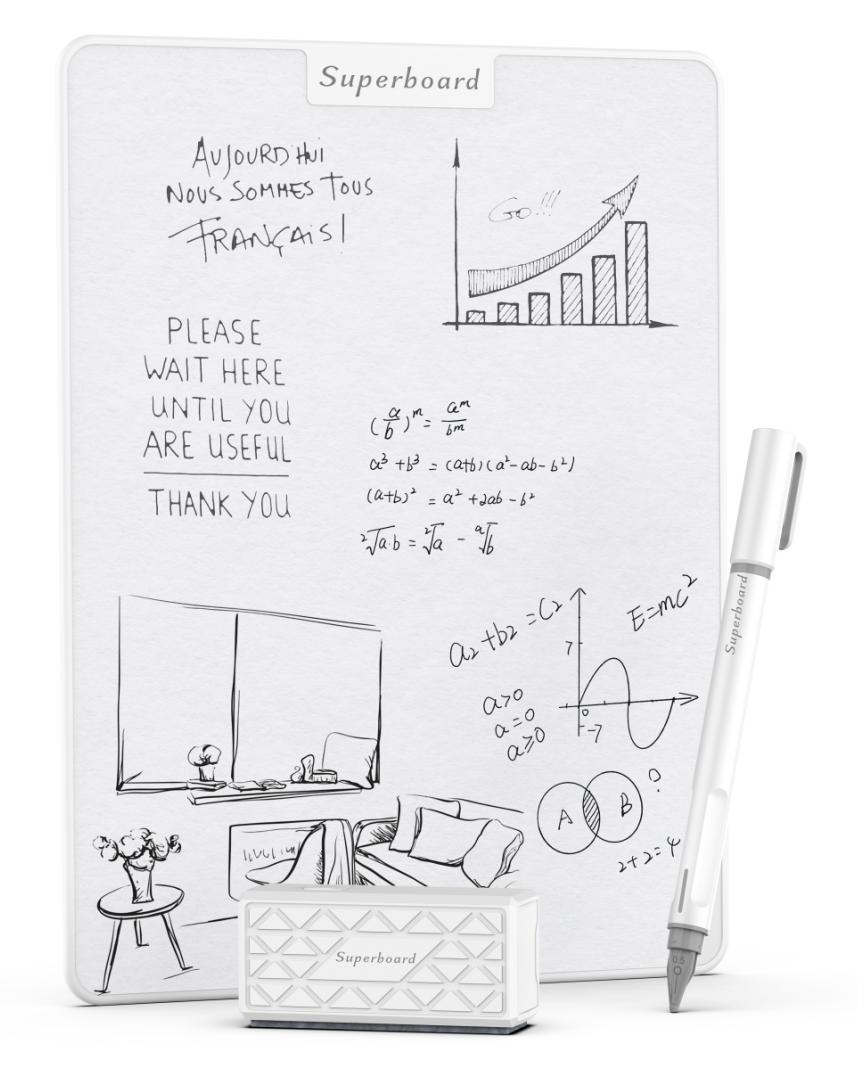 Superboard
AUJOURD'HUI
NOUS SOMMES TOUS
FRANÇAIS!
Go!!!
PLEASE
WAIT HERE
UNTIL YOU
ARE USEFUL
THANK YOU
(a/b)^m = a^m/b^m
a³+b³ = (a+b)(a²-ab-b²)
(a+b)² = a²+2ab-b²
²√a·b = ²√a - ᵃ√b
a₂+b₂=C₂
E=mc²
7
0
-7
a>0
a=0
a≥0
A B ?
2+2=4
Superboard
0.5
Superboard